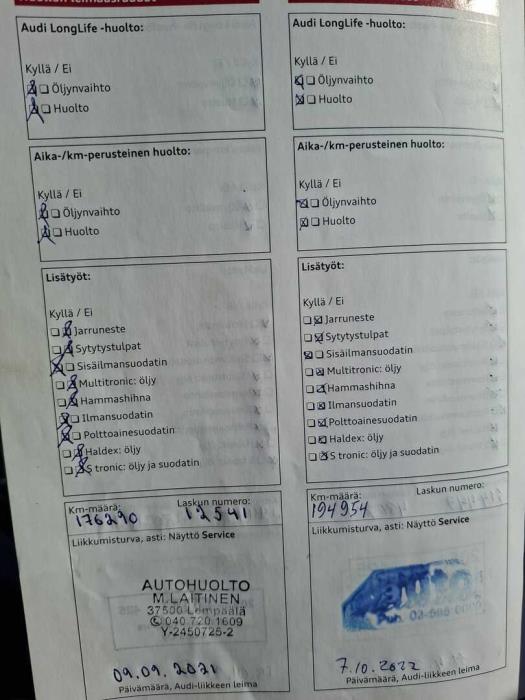 Audi LongLife -huolto:
Kyllä / Ei
Öljynvaihto
Huolto
Aika-/km-perusteinen huolto:
Kyllä / Ei
Öljynvaihto
Huolto
Lisätyöt:
Kyllä / Ei
Jarruneste
Sytytystulpat
Sisäilmansuodatin
Multitronic: öljy
Hammashihna
Ilmansuodatin
Polttoainesuodatin
Haldex: öljy
S tronic: öljy ja suodatin
Km-määrä: Laskun numero:
176290 12541
Liikkumisturva, asti: Näyttö Service
AUTOHUOLTO
M.LAITINEN
37500 Lempäälä
040 720 1609
Y-2450725-2
09.09.2021
Päivämäärä, Audi-liikkeen leima
Audi LongLife -huolto:
Kyllä / Ei
Öljynvaihto
Huolto
Aika-/km-perusteinen huolto:
Kyllä / Ei
Öljynvaihto
Huolto
Lisätyöt:
Kyllä / Ei
Jarruneste
Sytytystulpat
Sisäilmansuodatin
Multitronic: öljy
Hammashihna
Ilmansuodatin
Polttoainesuodatin
Haldex: öljy
S tronic: öljy ja suodatin
Km-määrä: Laskun numero:
194954
Liikkumisturva, asti: Näyttö Service
auto
Puh.
7.10.2022
Päivämäärä, Audi-liikkeen leima